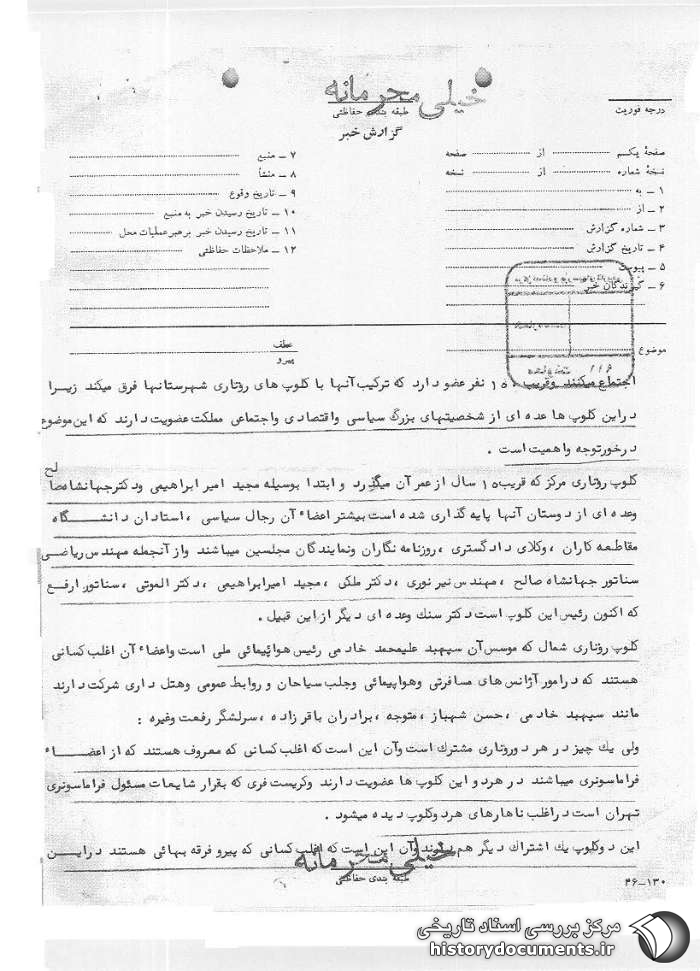 خیلی محرمانه
طبقه بندی حفاظتی
گزارش خبر
درجه فوریت
صفحهٔ یکم ........ از ........ صفحه
نسخهٔ شماره ........ از ........ نسخه
۱ ـ به
۲ ـ از
۳ ـ شماره گزارش
۴ ـ تاریخ گزارش
۵ ـ پیوست
۶ ـ گیرندگان خبر
۷ ـ منبع
۸ ـ منشأ
۹ ـ تاریخ وقوع
۱۰ ـ تاریخ رسیدن خبر به منبع
۱۱ ـ تاریخ رسیدن خبر برهبر عملیات محل
۱۲ ـ ملاحظات حفاظتی
موضوع
عطف
پیرو
اجتماع میکنند وقریب ۱۵۰ نفر عضو دارد که ترکیب آنها با کلوپ های روتاری شهرستانها فرق میکند زیرا
دراین کلوپ ها عده ای از شخصیتهای بزرگ سیاسی واقتصادی واجتماعی مملکت عضویت دارند که این موضوع
درخورتوجه واهمیت است .
کلوپ روتاری مرکز که قریب ۱۵ سال از عمر آن میگذرد و ابتدا بوسیله مجید امیر ابراهیمی ودکترجهانشاه صالح
وعده ای از دوستان آنها پایه گذاری شده است بیشتر اعضاء آن رجال سیاسی ، استادان دانشگاه
مقاطعه کاران ، وکلای دادگستری ، روزنامه نگاران ونمایندگان مجلسین میباشند واز آنجمله مهندس ریاضی
سناتور جهانشاه صالح ، مهندس نیر نوری ، دکتر ملکی ، مجید امیرابراهیمی ، دکتر الموتی ، سناتور ارفع
که اکنون رئیس این کلوپ است دکتر سنک وعده ای دیگر از این قبیل .
کلوپ روتاری شمال که موسس آن سپهبد علیمحمد خادمی رئیس هواپیمائی ملی است واعضاء آن اغلب کسانی
هستند که درامور آژانس های مسافرتی وهواپیمائی وجلب سیاحان و روابط عمومی وهتل داری شرکت دارند
مانند سپهبد خادمی ، حسن شهباز ، متوجه ، برادران باقر زاده ، سرلشگر رفعت وغیره :
ولی یك چیز در هر دوروتاری مشترك است وآن این است که اغلب کسانی که معروف هستند که از اعضاء
فراماسونری میباشند در هردو این کلوپ ها عضویت دارند وکریست فری که بقرار شایعات مسئول فراماسونری
تهران است دراغلب ناهارهای هردوکلوپ دیده میشود .
این دوکلوپ یك اشتراك دیگر هم دارند وآن این است که اغلب کسانی که پیرو فرقه بهائی هستند دراین
خیلی محرمانه
طبقه بندی حفاظتی
۴۶ـ۱۳۰
مرکز بررسی اسناد تاریخی
historydocuments.ir